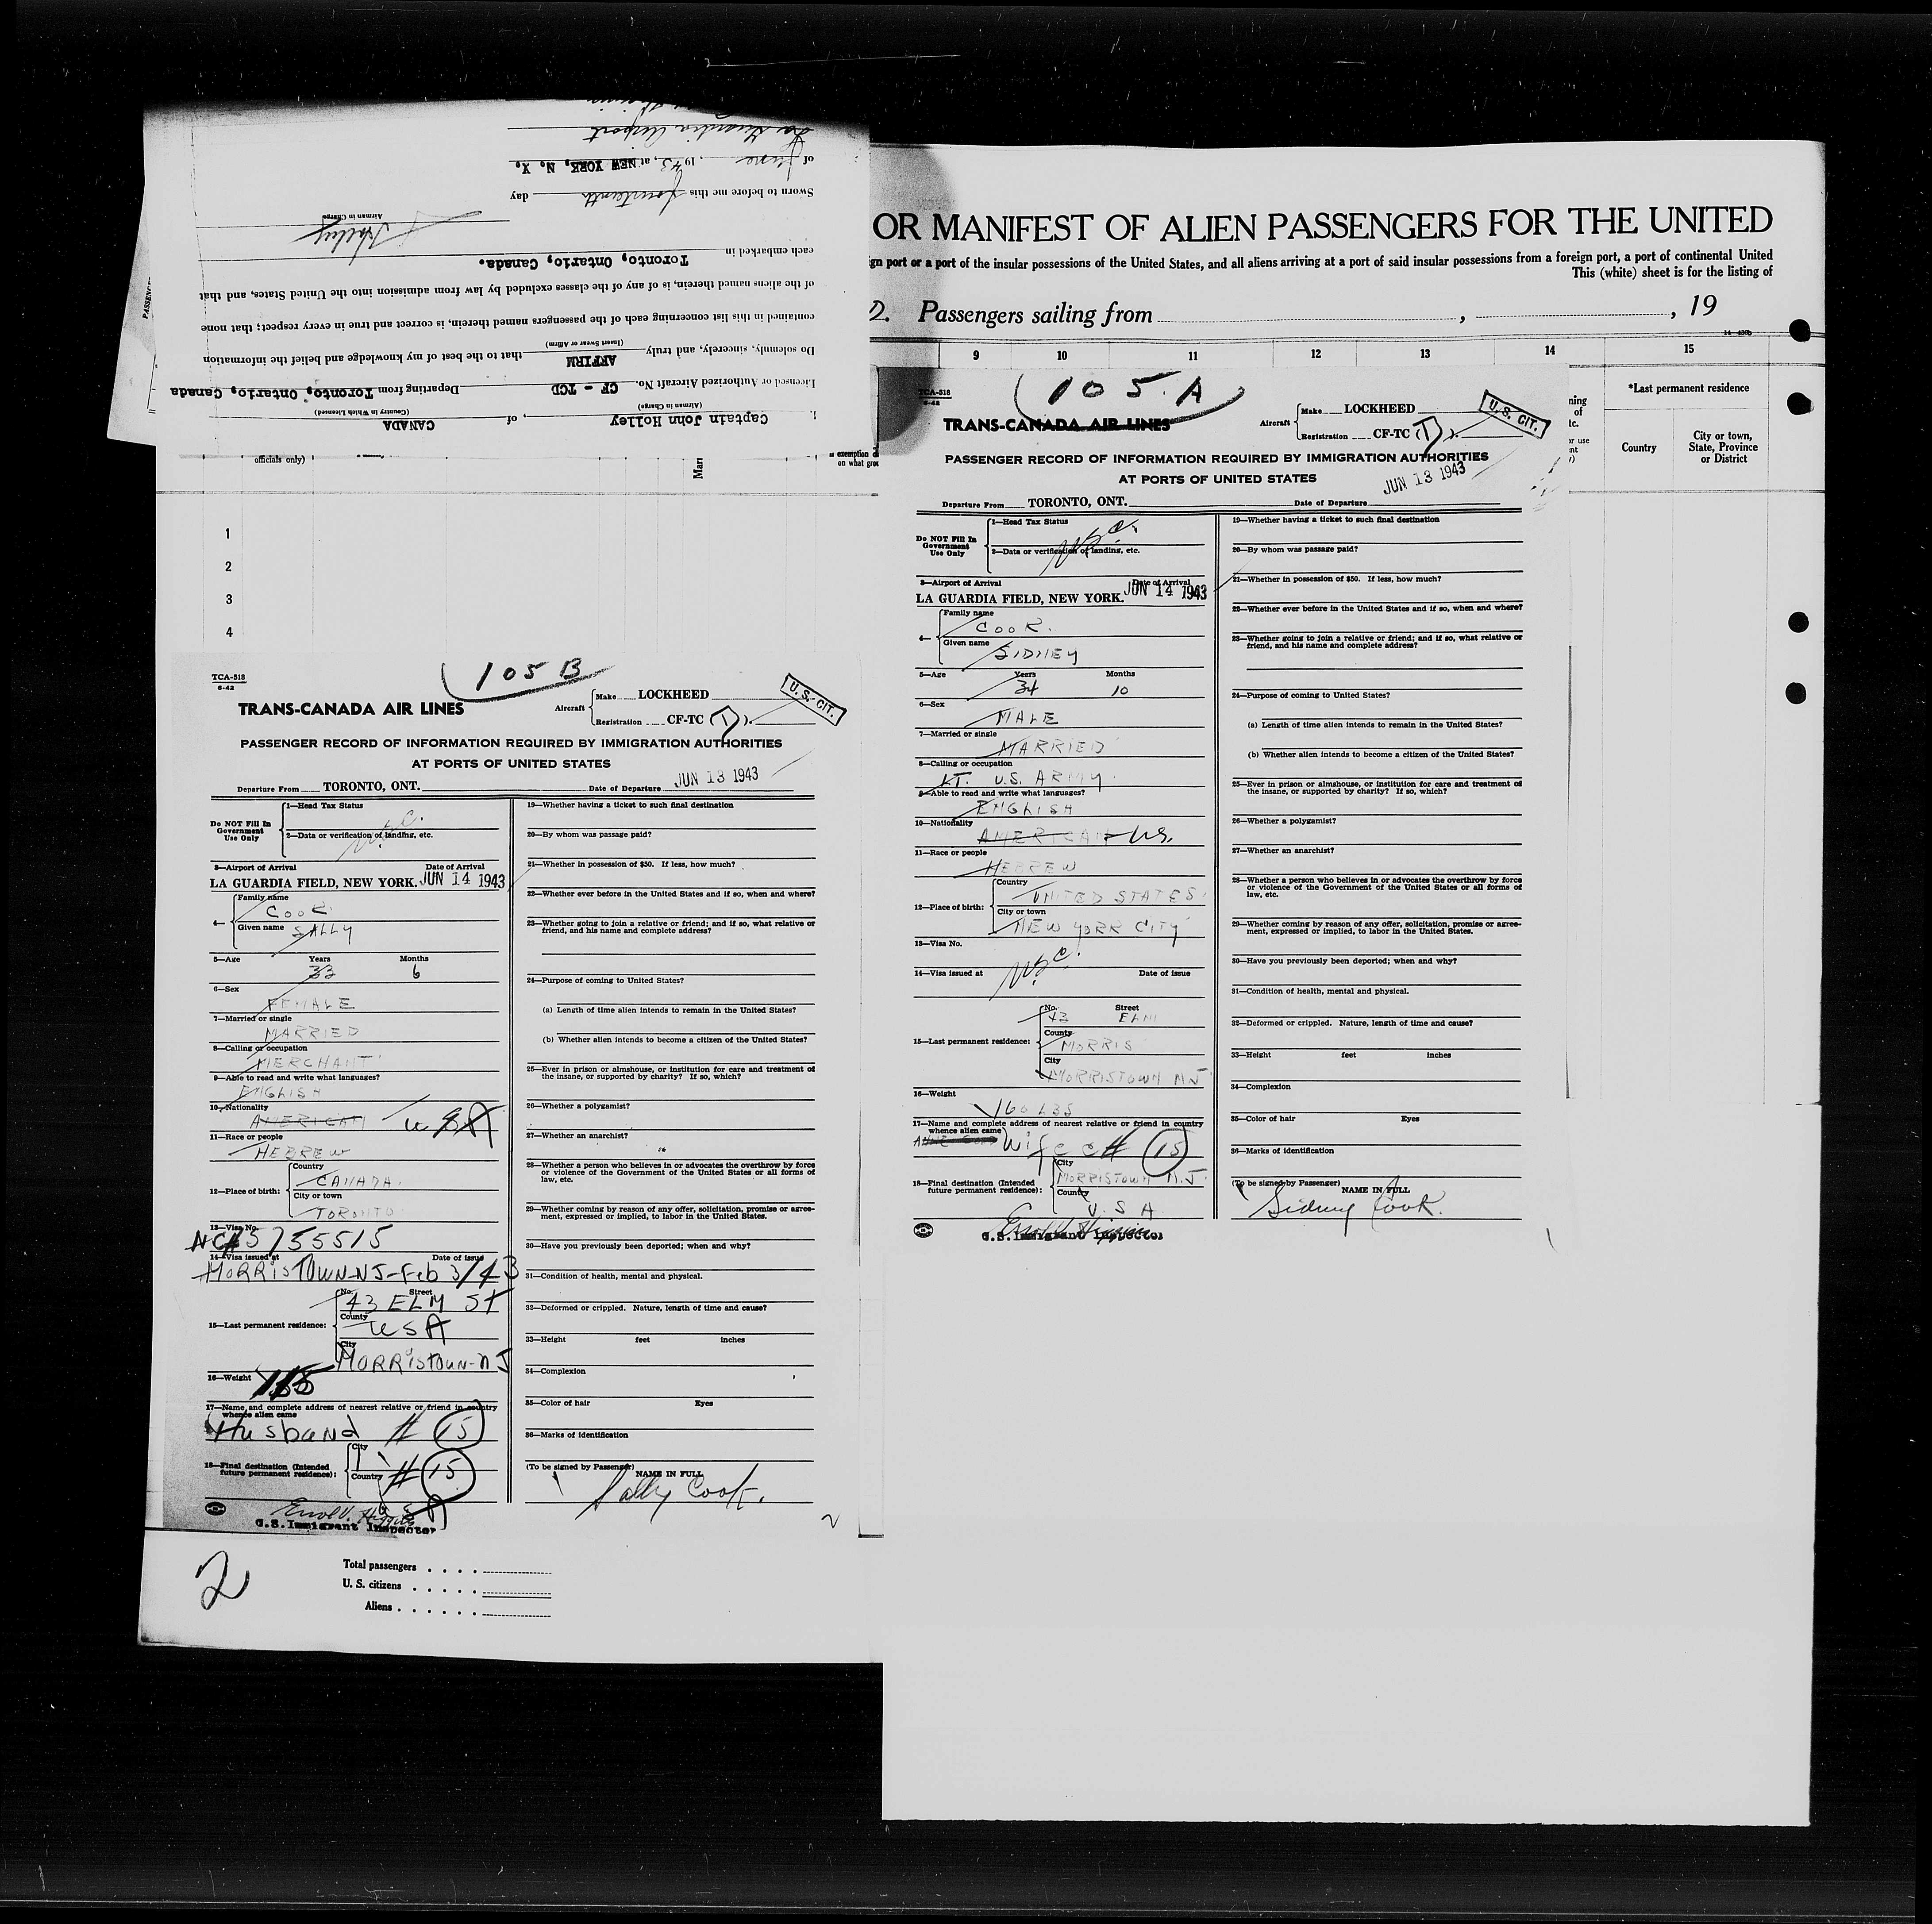 Captain John Holley, of CANADA
(Airman in Charge) (Country in Which Licensed)
Licensed or Authorized Aircraft No. CF - TCD Departing from Toronto, Ontario, Canada
Do solemnly, sincerely, and truly AFFIRM that to the best of my knowledge and belief the information
(Insert Swear or Affirm)
contained in this list concerning each of the passengers named therein, is correct and true in every respect; that none
of the aliens named therein, is of any of the classes excluded by law from admission into the United States, and that
each embarked in Toronto, Ontario, Canada.
Holley
Airman in Charge
Sworn to before me this fourteenth day
of June, 1943, at NEW YORK, N. Y.
La Guardia Airport
OR MANIFEST OF ALIEN PASSENGERS FOR THE UNITED
gn port or a port of the insular possessions of the United States, and all aliens arriving at a port of said insular possessions from a foreign port, a port of continental United
This (white) sheet is for the listing of
Passengers sailing from , , 19
9 10 11 12 13 14 15
*Last permanent residence
Country
City or town, State, Province or District
officials only)
exemption
on what
1
2
3
4
105 B
TCA-518
6-42
TRANS-CANADA AIR LINES
Aircraft
Make LOCKHEED
Registration CF-TC ( ).
U. S. CIT.
PASSENGER RECORD OF INFORMATION REQUIRED BY IMMIGRATION AUTHORITIES
AT PORTS OF UNITED STATES
Departure From TORONTO, ONT. Date of Departure JUN 13 1943
Do NOT Fill In
Government
Use Only
1—Head Tax Status
2—Data or verification of landing, etc.
3—Airport of Arrival Date of Arrival
LA GUARDIA FIELD, NEW YORK. JUN 14 1943
4—
Family name
COOK
Given name SALLY
5—Age Years Months
33 6
6—Sex
FEMALE
7—Married or single
MARRIED
8—Calling or occupation
MERCHANT
9—Able to read and write what languages?
ENGLISH
10—Nationality
AMERICAN USA
11—Race or people
HEBREW
12—Place of birth:
Country
CANADA
City or town
TORONTO
13—Visa No.
5755515
14—Visa issued at Date of issue
MORRISTOWN-NJ-Feb 3/43
15—Last permanent residence:
No. Street
43 ELM ST
County
USA
City
MORRISTOWN-NJ
16—Weight
17—Name and complete address of nearest relative or friend in country
whence alien came
Husband # 15
18—Final destination (Intended
future permanent residence):
City
Country # 15
U.S.Immigrant Inspector
19—Whether having a ticket to such final destination
20—By whom was passage paid?
21—Whether in possession of $50. If less, how much?
22—Whether ever before in the United States and if so, when and where?
23—Whether going to join a relative or friend; and if so, what relative or
friend, and his name and complete address?
24—Purpose of coming to United States?
(a) Length of time alien intends to remain in the United States?
(b) Whether alien intends to become a citizen of the United States?
25—Ever in prison or almshouse, or institution for care and treatment of
the insane, or supported by charity? If so, which?
26—Whether a polygamist?
27—Whether an anarchist?
28—Whether a person who believes in or advocates the overthrow by force
or violence of the Government of the United States or all forms of
law, etc.
29—Whether coming by reason of any offer, solicitation, promise or agree-
ment, expressed or implied, to labor in the United States.
30—Have you previously been deported; when and why?
31—Condition of health, mental and physical.
32—Deformed or crippled. Nature, length of time and cause?
33—Height feet inches
34—Complexion
35—Color of hair Eyes
36—Marks of identification
(To be signed by Passenger)
NAME IN FULL
Sally Cook.
2
Total passengers
U. S. citizens
Aliens
105. A
TCA-518
6-42
TRANS-CANADA AIR LINES
Aircraft
Make LOCKHEED
Registration CF-TC ( ).
U. S. CIT.
PASSENGER RECORD OF INFORMATION REQUIRED BY IMMIGRATION AUTHORITIES
AT PORTS OF UNITED STATES
Departure From TORONTO, ONT. Date of Departure JUN 13 1943
Do NOT Fill In
Government
Use Only
1—Head Tax Status
2—Data or verification of landing, etc.
3—Airport of Arrival Date of Arrival
LA GUARDIA FIELD, NEW YORK. JUN 14 1943
4—
Family name
COOK.
Given name
SIDNEY
5—Age Years Months
34 10
6—Sex
MALE
7—Married or single
MARRIED
8—Calling or occupation
LT. U.S. ARMY.
9—Able to read and write what languages?
ENGLISH
10—Nationality
AMERICAN US.
11—Race or people
HEBREW
12—Place of birth:
Country
UNITED STATES
City or town
NEW YORK CITY
13—Visa No.
14—Visa issued at Date of issue
15—Last permanent residence:
No. Street
43 ELM
County
MORRIS
City
MORRISTOWN NJ
16—Weight
160 LBS
17—Name and complete address of nearest relative or friend in country
whence alien came
Wife # 15
18—Final destination (Intended
future permanent residence):
City
MORRISTOWN N.J.
Country
U.S.A
U.S.Immigrant Inspector
19—Whether having a ticket to such final destination
20—By whom was passage paid?
21—Whether in possession of $50. If less, how much?
22—Whether ever before in the United States and if so, when and where?
23—Whether going to join a relative or friend; and if so, what relative or
friend, and his name and complete address?
24—Purpose of coming to United States?
(a) Length of time alien intends to remain in the United States?
(b) Whether alien intends to become a citizen of the United States?
25—Ever in prison or almshouse, or institution for care and treatment of
the insane, or supported by charity? If so, which?
26—Whether a polygamist?
27—Whether an anarchist?
28—Whether a person who believes in or advocates the overthrow by force
or violence of the Government of the United States or all forms of
law, etc.
29—Whether coming by reason of any offer, solicitation, promise or agree-
ment, expressed or implied, to labor in the United States.
30—Have you previously been deported; when and why?
31—Condition of health, mental and physical.
32—Deformed or crippled. Nature, length of time and cause?
33—Height feet inches
34—Complexion
35—Color of hair Eyes
36—Marks of identification
(To be signed by Passenger)
NAME IN FULL
Sidney Cook.